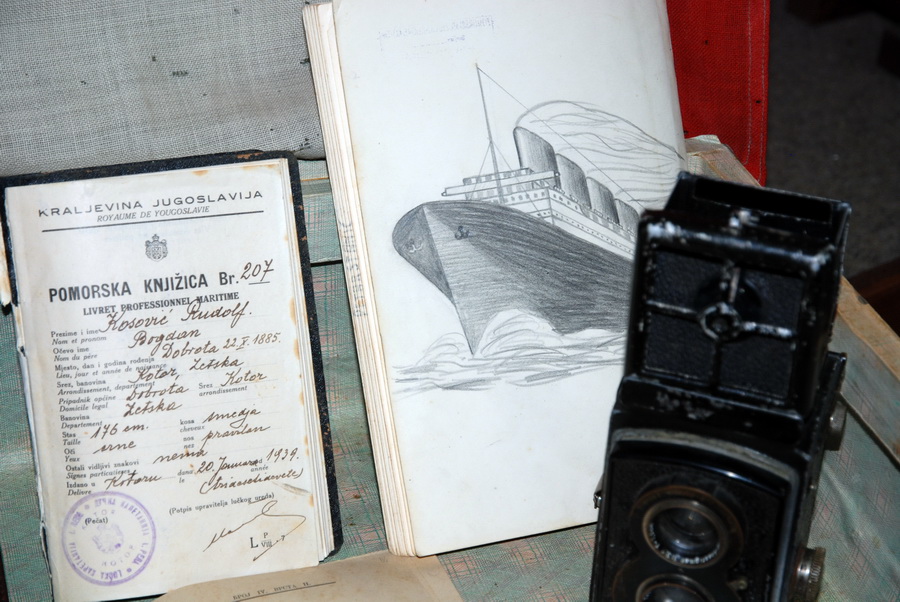 KRALJEVINA JUGOSLAVIJA
ROYAUME DE YOUGOSLAVIE
POMORSKA KNJIŽICA Br. 207
LIVRET PROFESSIONNEL MARITIME
Prezime i ime Kosović Rudolf.
Nom et prenom
Očevo ime Bogdan
Nom du père
Mjesto, dan i godina rođenja Dobrota 22.X.1885.
Lieu, jour et année de naissance
Srez, banovina Kotor, Zetska
Arrondissement, departement
Pripadnik općine Dobrota Srez Kotor
Domicile legal arrondissement
Banovina Zetska
Departement
Stas 176 cm. kosa smeđja
Taille cheveux
Oči crne nos pravilan
Yeux nez
Ostali vidljivi znakovi nema
Signes particuliers
Izdano u Kotoru dana 20. Januara 1939.
Delivre le année
(Pečat)
(Potpis upravitelja lučkog ureda)
L P
VIII